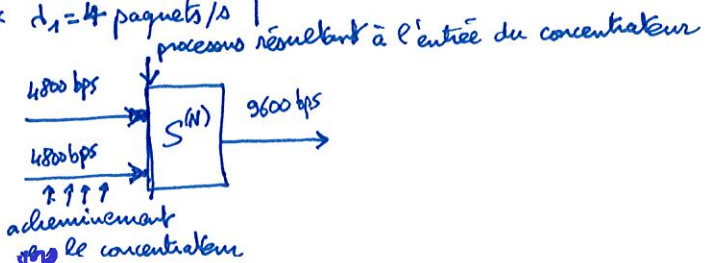 λ₁ = 4 paquets/s
processus résultant à l'entrée du concentrateur
4800 bps
9600 bps
S(N)
4800 bps
acheminement
le concentrateur